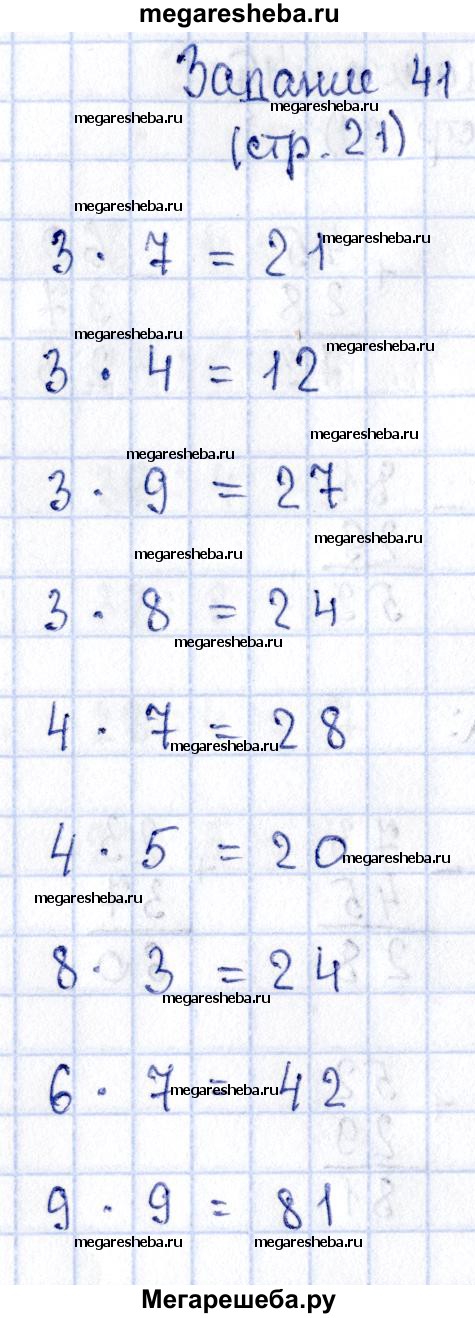 megaresheba.ru
Задание 41
megaresheba.ru
megaresheba.ru
(стр. 21)
megaresheba.ru
megaresheba.ru
3 · 7 = 21
megaresheba.ru
megaresheba.ru
3 · 4 = 12
megaresheba.ru
megaresheba.ru
3 · 9 = 27
megaresheba.ru
megaresheba.ru
3 · 8 = 24
megaresheba.ru
4 · 7 = 28
megaresheba.ru
4 · 5 = 20
megaresheba.ru
megaresheba.ru
8 · 3 = 24
megaresheba.ru
6 · 7 = 42
megaresheba.ru
9 · 9 = 81
megaresheba.ru
megaresheba.ru
Мегарешеба.ру